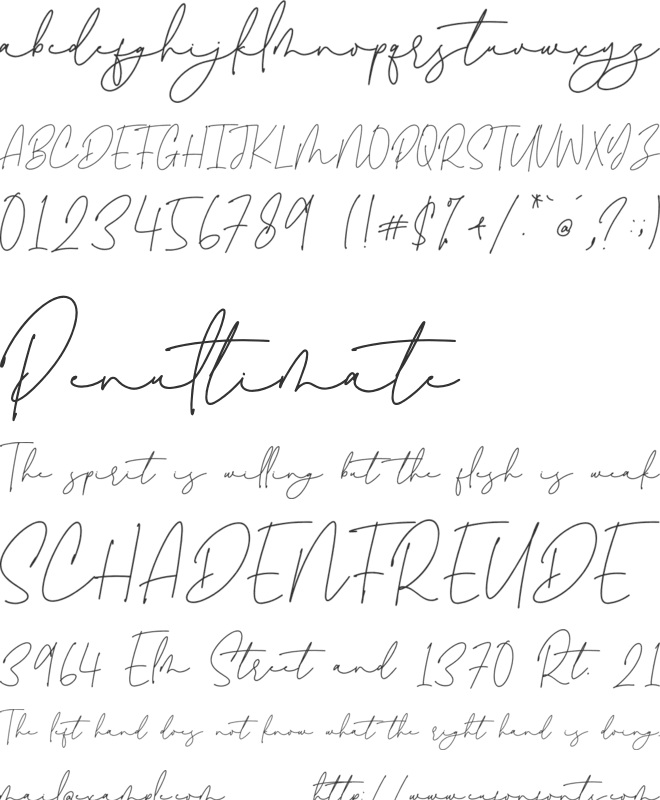 abcdefghijklmnopqrstuvwxyz
ABCDEFGHIJKLMNOPQRSTUVWXYZ
0123456789 (!#$%+/.*`@´,?:;)
Penultimate
The spirit is willing but the flesh is weak
SCHADENFREUDE
3964 Elm Street and 1370 Rt. 21
The left hand does not know what the right hand is doing.
mail@example.com http://www.cufonfonts.com